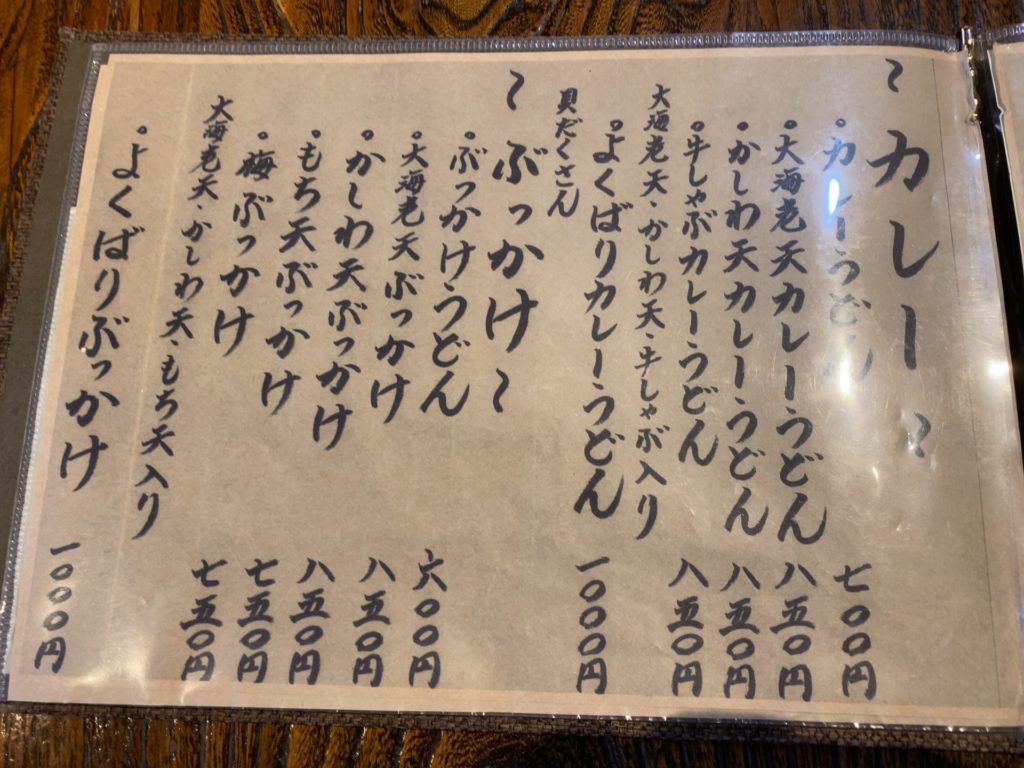 ~カレー~
・カレーうどん 七〇〇円
・大海老天カレーうどん 八五〇円
・かしわ天カレーうどん 八五〇円
・牛しゃぶカレーうどん 八五〇円
大海老天・かしわ天・牛しゃぶ入り
・よくばりカレーうどん 一〇〇〇円
具だくさん
~ぶっかけ~
・ぶっかけうどん 六〇〇円
・大海老天ぶっかけ 八五〇円
・かしわ天ぶっかけ 八五〇円
・もち天ぶっかけ 七五〇円
・梅ぶっかけ 七五〇円
大海老天・かしわ天・もち天入り
・よくばりぶっかけ 一〇〇〇円